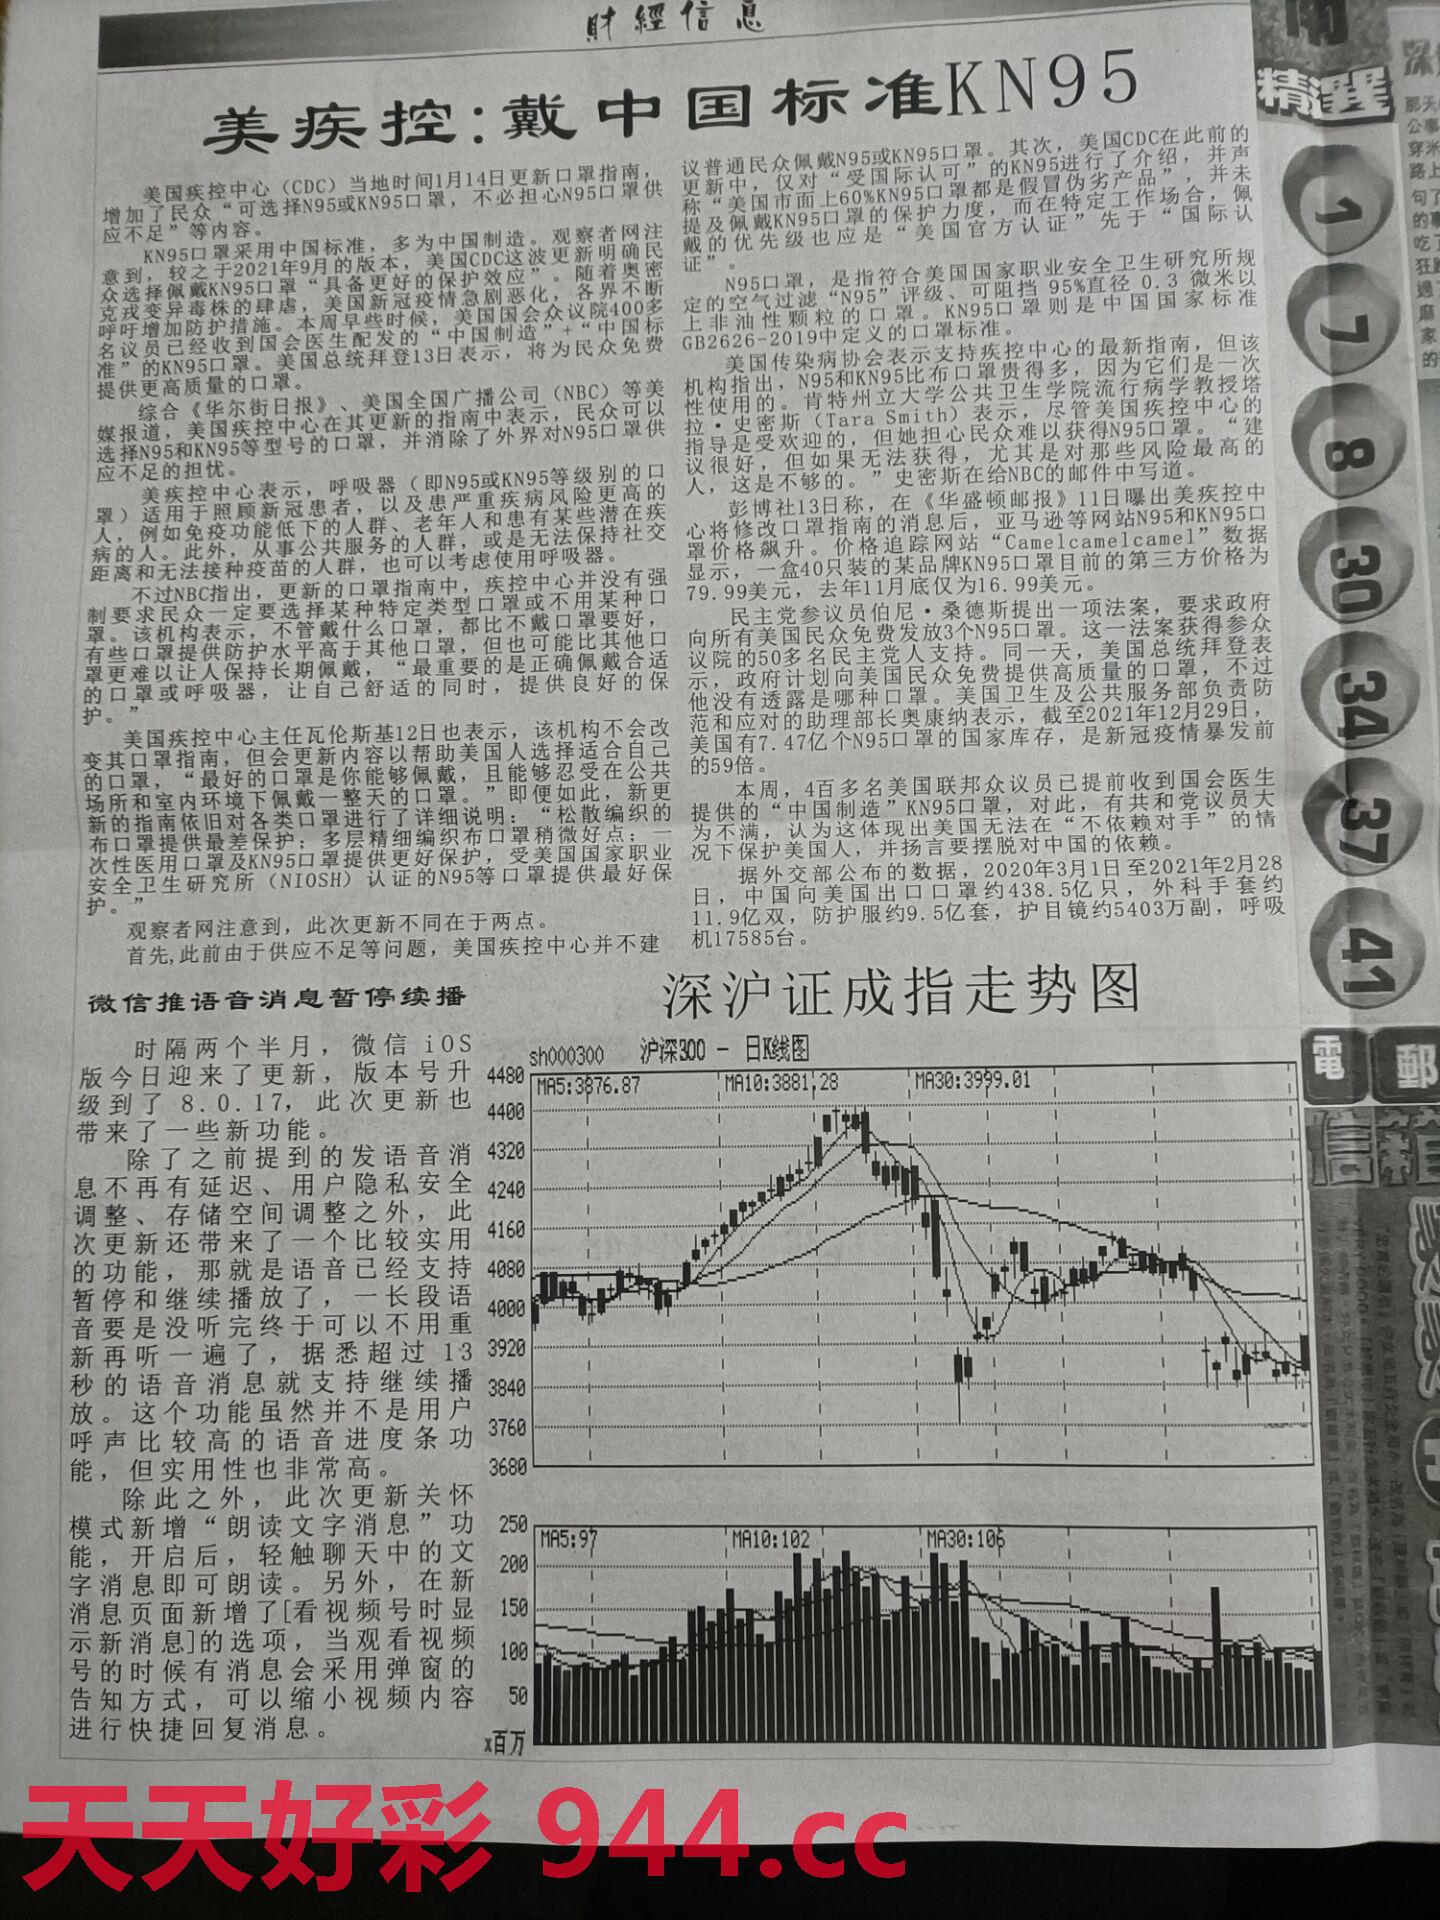 財經信息
美疾控:戴中国标准KN95
美国疾控中心（CDC）当地时间1月14日更新口罩指南，
增加了民众“可选择N95或KN95口罩，不必担心N95口罩供
应不足”等内容。
KN95口罩采用中国标准，多为中国制造。观察者网注
意到，较之于2021年9月的版本，美国CDC这波更新明确民
众选择佩戴KN95口罩“具备更好的保护效应”。随着奥密
克戎变异毒株的肆虐，美国新冠疫情急剧恶化，各界不断
呼吁增加防护措施。本周早些时候，美国国会众议院400多
名议员已经收到国会医生配发的“中国制造”+“中国标
准”的KN95口罩。美国总统拜登13日表示，将为民众免费
提供更高质量的口罩。
综合《华尔街日报》、美国全国广播公司（NBC）等美
媒报道，美国疾控中心在其更新的指南中表示，民众可以
选择N95和KN95等型号的口罩，并消除了外界对N95口罩供
应不足的担忧。
美疾控中心表示，呼吸器（即N95或KN95等级别的口
罩）适用于照顾新冠患者，以及患严重疾病风险更高的
人，例如免疫功能低下的人群、老年人和患有某些潜在疾
病的人。此外，从事公共服务的人群，或是无法保持社交
距离和无法接种疫苗的人群，也可以考虑使用呼吸器。
不过NBC指出，更新的口罩指南中，疾控中心并没有强
制要求民众一定要选择某种特定类型口罩或不用某种口
罩。该机构表示，不管戴什么口罩，都比不戴口罩要好，
有些口罩提供防护水平高于其他口罩，但也可能比其他口
罩更难以让人保持长期佩戴，“最重要的是正确佩戴合适
的口罩或呼吸器，让自己舒适的同时，提供良好的保
护。”
美国疾控中心主任瓦伦斯基12日也表示，该机构不会改
变其口罩指南，但会更新内容以帮助美国人选择适合自己
的口罩，“最好的口罩是你能够佩戴，且能够忍受在公共
场所和室内环境下佩戴一整天的口罩。”即便如此，新更
新的指南依旧对各类口罩进行了详细说明：“松散编织的
布口罩提供最差保护；多层精细编织布口罩稍微好点；一
次性医用口罩及KN95口罩提供更好保护，受美国国家职业
安全卫生研究所（NIOSH）认证的N95等口罩提供最好保
护。”
观察者网注意到，此次更新不同在于两点。
首先,此前由于供应不足等问题，美国疾控中心并不建
议普通民众佩戴N95或KN95口罩。其次，美国CDC在此前的
更新中，仅对“受国际认可”的KN95进行了介绍，并声
称“美国市面上60%KN95口罩都是假冒伪劣产品”，并未
提及佩戴KN95口罩的保护力度，而在特定工作场合，佩
戴的优先级也应是“美国官方认证”先于“国际认
证”。
N95口罩，是指符合美国国家职业安全卫生研究所规
定的空气过滤“N95”评级、可阻挡 95%直径 0.3 微米以
上非油性颗粒的口罩。KN95口罩则是中国国家标准
GB2626-2019中定义的口罩标准。
美国传染病协会表示支持疾控中心的最新指南，但该
机构指出，N95和KN95比布口罩贵得多，因为它们是一次
性使用的。肯特州立大学公共卫生学院流行病学教授塔
拉·史密斯（Tara Smith）表示，尽管美国疾控中心的
指导是受欢迎的，但她担心民众难以获得N95口罩。“建
议很好，但如果无法获得，尤其是对那些风险最高的
人，这是不够的。”史密斯在给NBC的邮件中写道。
彭博社13日称，在《华盛顿邮报》11日曝出美疾控中
心将修改口罩指南的消息后，亚马逊等网站N95和KN95口
罩价格飙升。价格追踪网站“Camelcamelcamel”数据
显示，一盒40只装的某品牌KN95口罩目前的第三方价格为
79.99美元，去年11月底仅为16.99美元。
民主党参议员伯尼·桑德斯提出一项法案，要求政府
向所有美国民众免费发放3个N95口罩。这一法案获得参众
议院的50多名民主党人支持。同一天，美国总统拜登表
示，政府计划向美国民众免费提供高质量的口罩，不过
他没有透露是哪种口罩。美国卫生及公共服务部负责防
范和应对的助理部长奥康纳表示，截至2021年12月29日，
美国有7.47亿个N95口罩的国家库存，是新冠疫情暴发前
的59倍。
本周，4百多名美国联邦众议员已提前收到国会医生
提供的“中国制造”KN95口罩，对此，有共和党议员大
为不满，认为这体现出美国无法在“不依赖对手”的情
况下保护美国人，并扬言要摆脱对中国的依赖。
据外交部公布的数据，2020年3月1日至2021年2月28
日，中国向美国出口口罩约438.5亿只，外科手套约
11.9亿双，防护服约9.5亿套，护目镜约5403万副，呼吸
机17585台。
微信推语音消息暂停续播
时隔两个半月，微信 iOS
版今日迎来了更新，版本号升
级到了 8.0.17，此次更新也
带来了一些新功能。
除了之前提到的发语音消
息不再有延迟、用户隐私安全
调整、存储空间调整之外，此
次更新还带来了一个比较实用
的功能，那就是语音已经支持
暂停和继续播放了，一长段语
音要是没听完终于可以不用重
新再听一遍了，据悉超过 13
秒的语音消息就支持继续播
放。这个功能虽然并不是用户
呼声比较高的语音进度条功
能，但实用性也非常高。
除此之外，此次更新关怀
模式新增“朗读文字消息”功
能，开启后，轻触聊天中的文
字消息即可朗读。另外，在新
消息页面新增了[看视频号时显
示新消息]的选项，当观看视频
号的时候有消息会采用弹窗的
告知方式，可以缩小视频内容
进行快捷回复消息。
深沪证成指走势图
sh000300 沪深300 - 日K线图
MA5:3876.87 MA10:3881.28 MA30:3999.01
4480
4400
4320
4240
4160
4080
4000
3920
3840
3760
3680
MA5:97 MA10:102 MA30:106
250
200
150
100
50
x百万
精選
1
7
8
30
34
37
41
電
郵
信箱
天天好彩 944.cc